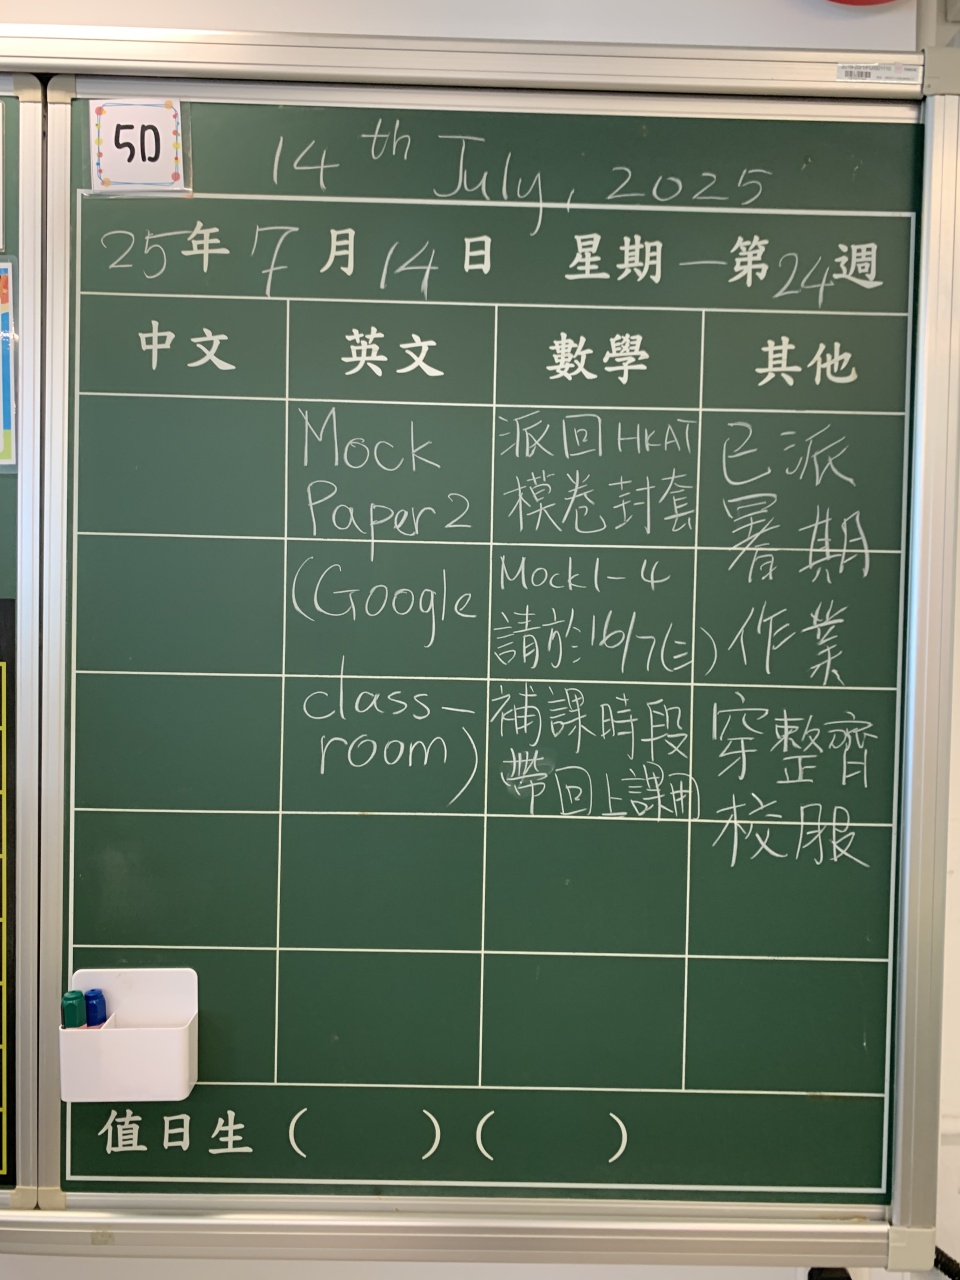 5D
14th July, 2025
25年7月14日 星期一第24週
中文 英文 數學 其他
Mock
Paper 2
(Google
class-
room)
派回HKAT
模卷封套
Mock 1-4
請於16/7(三)
補課時段
帶回上課用
已派
暑期
作業
穿整齊
校服
值日生 (　　) (　　)